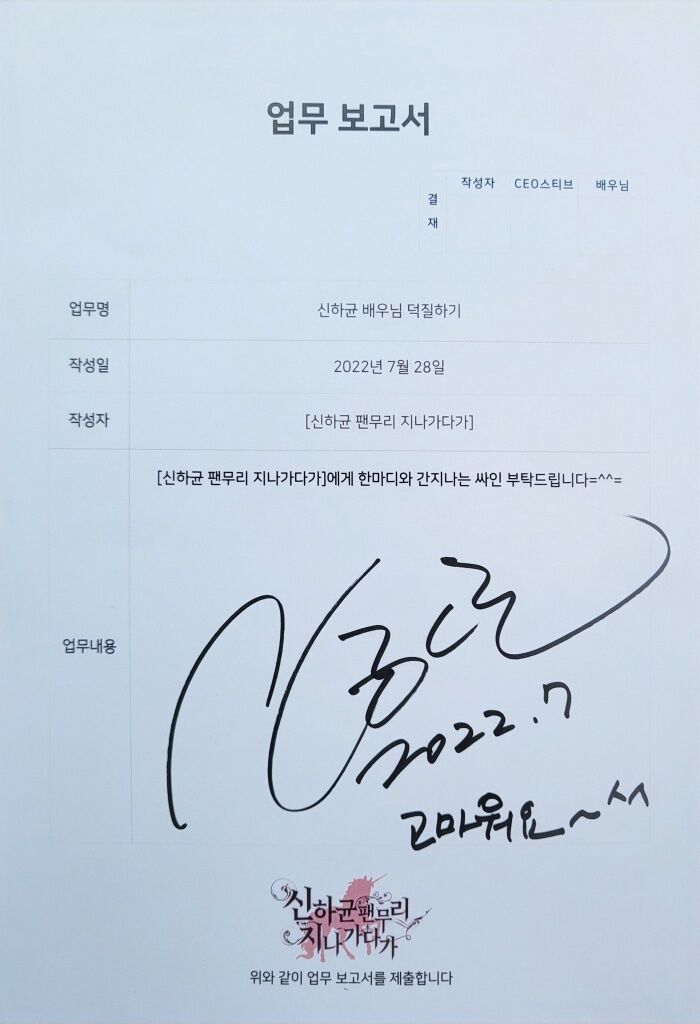 업무 보고서
결재
작성자 CEO스티브 배우님
업무명 신하균 배우님 덕질하기
작성일 2022년 7월 28일
작성자 [신하균 팬무리 지나가다가]
업무내용
[신하균 팬무리 지나가다가]에게 한마디와 간지나는 싸인 부탁드립니다=^^=
신하균
2022.7
고마워요~^^
신하균팬무리
지나가다가
위와 같이 업무 보고서를 제출합니다